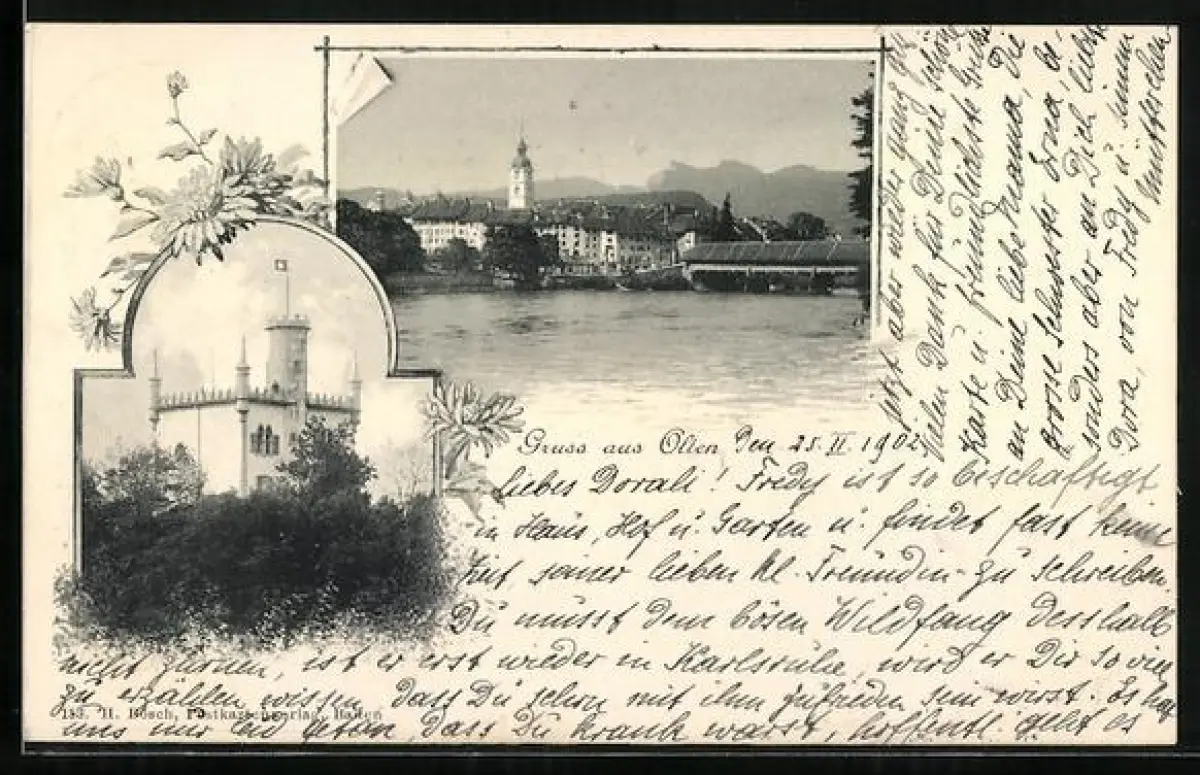 Gruss aus Olten den 25. II. 1902.
Liebes Dorali! Fredy ist so beschäftigt
in Haus, Hof u. Garten u. findet fast keine
Zeit, seiner lieben kl. Freundin zu schreiben.
Du musst dem bösen Wildfang desshalb
nicht zürnen, ist er erst wieder in Karlsruhe, wird er Dir so viel
zu erzählen wissen dass Du schon mit ihm zufrieden sein wirst. Es hat
uns nur leid getan, dass Du krank warst, hoffentl. geht es
jetzt aber wieder ganz gut
Vielen Dank für Deine schöne
Karte u. freundlichste Grüsse
an Deine liebe Mama, Die
grosse Schwester Erna, be-
sonders aber an Dich, liebste
Dora, von Fredy u. seinem
Mütterchen
153. H. Bösch, Postkartenverlag, Baden